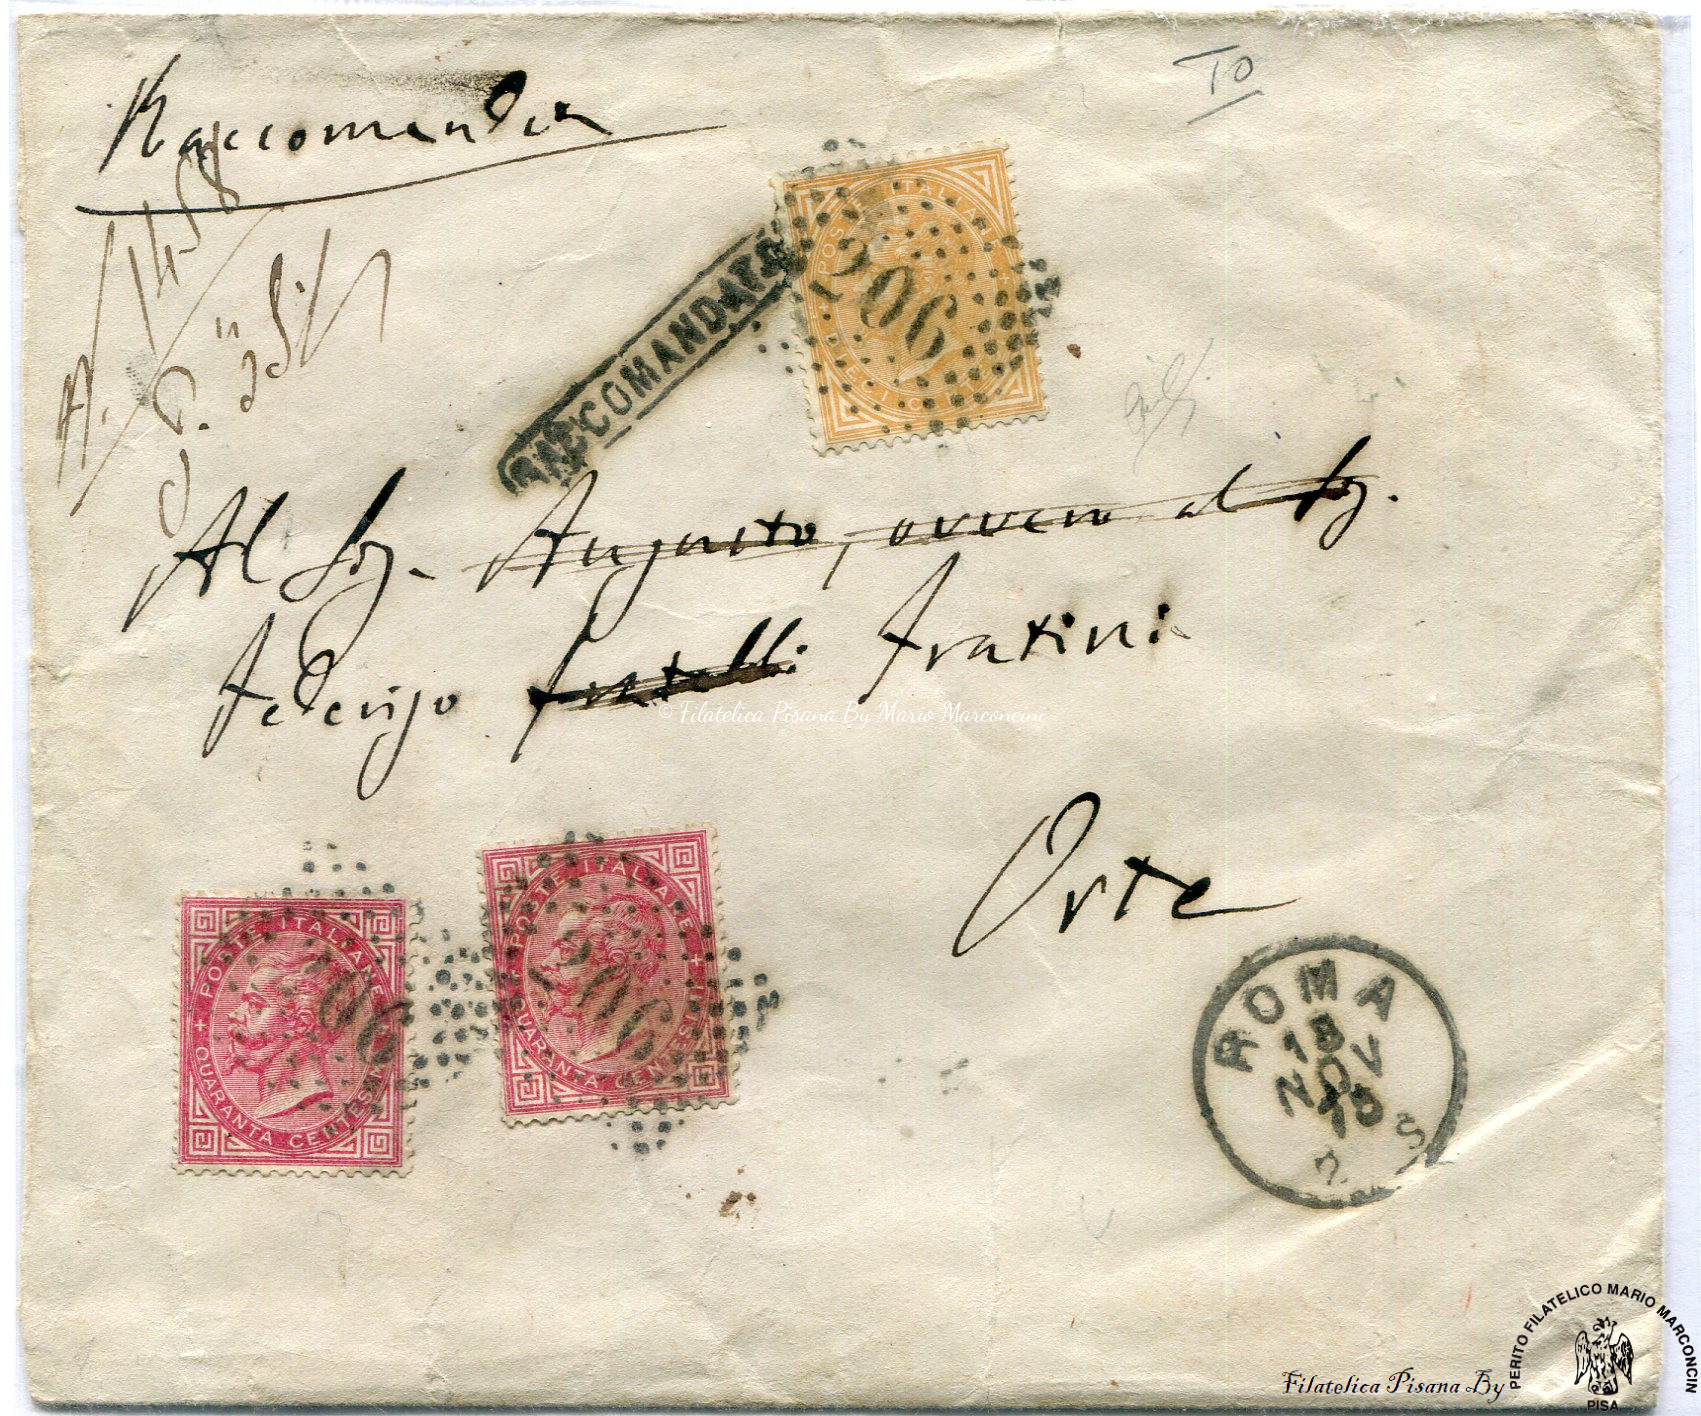 Raccomandata
N. 1458
10
RACCOMANDATA
POSTE ITALIANE
DIECI C
1206
Al Sig. Augusto, ovvero al Sig.
Federigo fratelli Fratini
© Filatelica Pisana By Mario Marconcini
Orte
POSTE ITALIANE
QUARANTA CENTESIMI
06
POSTE ITALIANE
QUARANTA CENTESIMI
1206
ROMA
18
NOV
70
2 S
Filatelica Pisana By
PERITO FILATELICO MARIO MARCONCIN
PISA